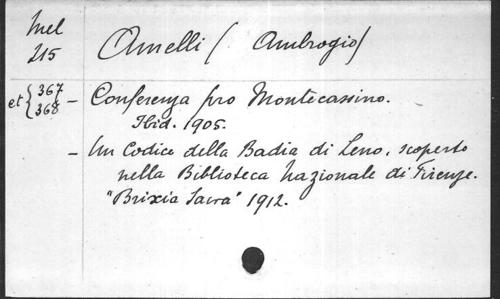 Mel Amelli (Ambrogio)
215
et { 367 368 – Conferenza pro Montecassino.
Ibid. 1905.
– Un Codice della Badia di Leno, scoperto
nella Biblioteca Nazionale di Firenze.
"Brixia Sacra" 1912.